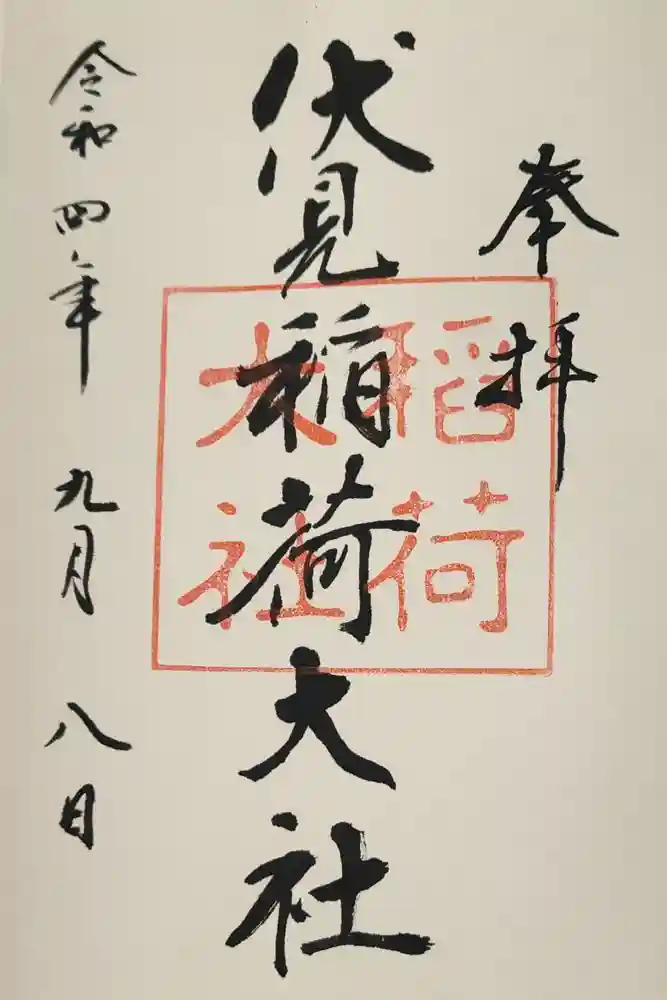 奉拝
伏見稲荷大社
稲荷
大社
令和四年 九月 八日